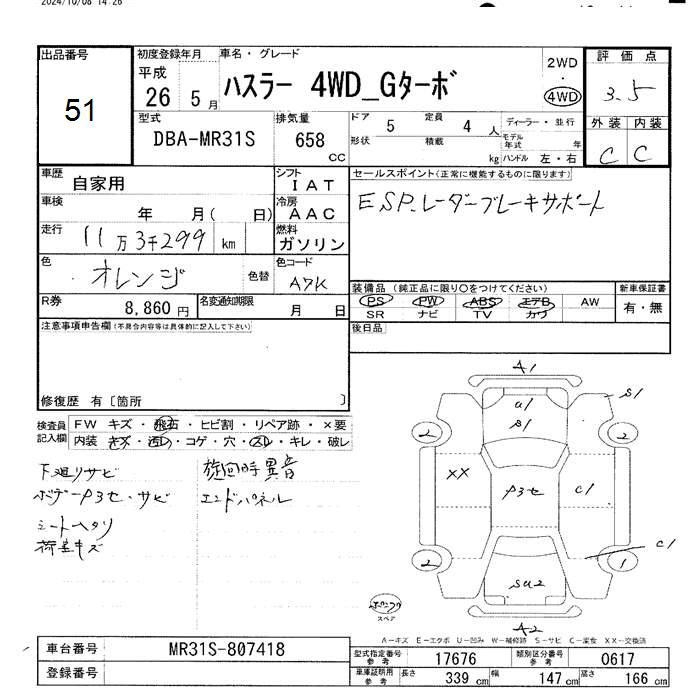 2024/10/08 14:26
出品番号
51
初度登録年月
平成
26 5月
車名・グレード
ハスラー 4WD_Gターボ
2WD
・
4WD
評価点
3.5
外装 内装
C C
型式
DBA-MR31S
排気量
658
CC
ドア 5
定員 4 人
形状
積載 kg
ディーラー・並行
モデル年式 年
ハンドル 左・右
車歴
自家用
シフト
IAT
車検
年 月( 日)
冷房
AAC
走行
11万3千299 km
燃料
ガソリン
色
オレンジ
色替
色コード
A7K
R券
8,860円
名変通知期限
月 日
セールスポイント(正常に機能するものに限ります)
ESP.レーダーブレーキサポート
装備品(純正品に限り○をつけてください)
新車保証書
PS PW ABS エアB AW
有・無
SR ナビ TV カワ
後日品
注意事項申告欄(不具合内容等は具体的に記入して下さい)
修復歴 有〔箇所 〕
検査員
記入欄
FW キズ・飛石・ヒビ割・リペア跡・×要
内装・キズ・汚レ・コゲ・穴・スレ・キレ・破レ
下廻りサビ
ボデーP3セ・サビ
シートヘタリ
荷室キズ
旋回時異音
エンドパネル
A1
a1
S1
S1
2
2
XX
P3セ
C1
C1
2
1
Sa2
A2
スペア
A-キズ E-エクボ U-凹み W-補修跡 S-サビ C-腐食 XX-交換済
車台番号
MR31S-807418
登録番号
型式指定番号
参考
17676
類別区分番号
参考
0617
車庫証明用
参考
長さ 339 cm
幅 147 cm
高さ 166 cm